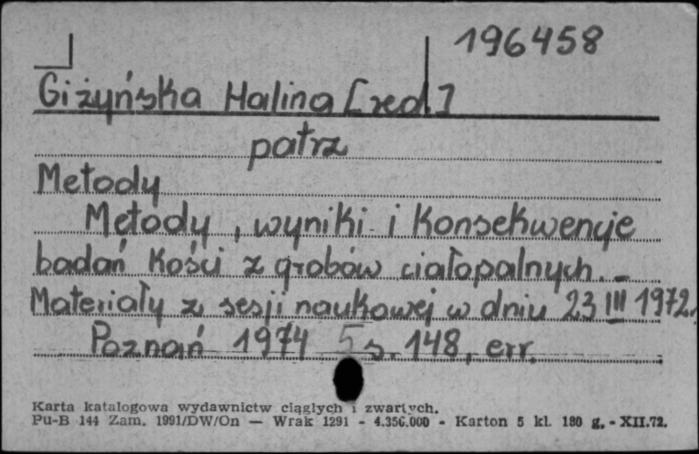 196458
Giżyńska Halina [red.]
patrz
Metody
Metody, wyniki i konsekwencje
badań kości z grobów ciałopalnych. -
Materiały z sesji naukowej w dniu 23 III 1972.
Poznań 1974 5 s. 148, err.
Karta katalogowa wydawnictw ciągłych i zwartych.
Pu-B 144 Zam. 1991/DW/On — Wrak 1291 - 4.356.000 - Karton 5 kl. 180 g. - XII.72.